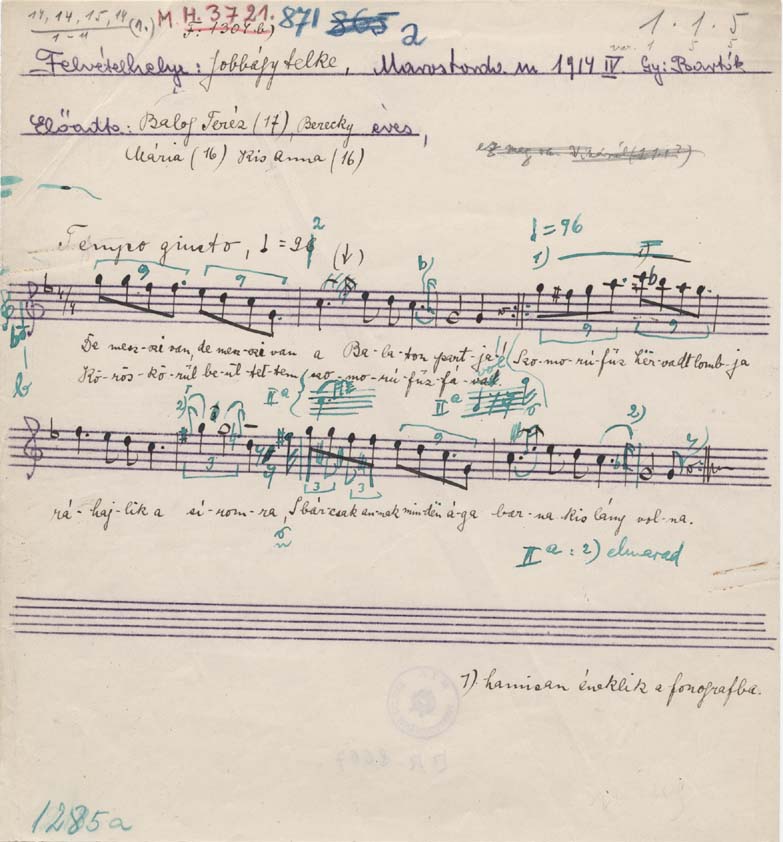 14, 14, 15, 14 (1.) M. H. 3721. 871 865 a 1. 1. 5
1-11 F. 1304.b) var. 1 5 5
Felvételhelye: Jobbágytelke, Marostorda m 1914 IV. Gy: Bartók
Előadta: Balog Teréz (17), Berecky éves,
Mária (16) Kis Anna (16)
ez meg van
Tempo giusto, ♩ = 96 2 (↓) b) ♩ = 96
1) 1)
9 9 9 9
De mesz-szi van, de mesz-szi van a Ba-la-ton part-ja! Szo-mo-rú-fűz hër-vadt lomb-ja
Kö-rös-kö-rül be-ül-tet-tem szo-mo-rú-fűz-fá-val.
b IIa IIa
2) 3 3 3 9 2)
rá-haj-lik a sí-rom-ra, S bár csak an-nak min-dën á-ga bar-na kis lány vol-na.
IIa: 2) elmarad
1) hamisan éneklik a fonográfba.
1285a